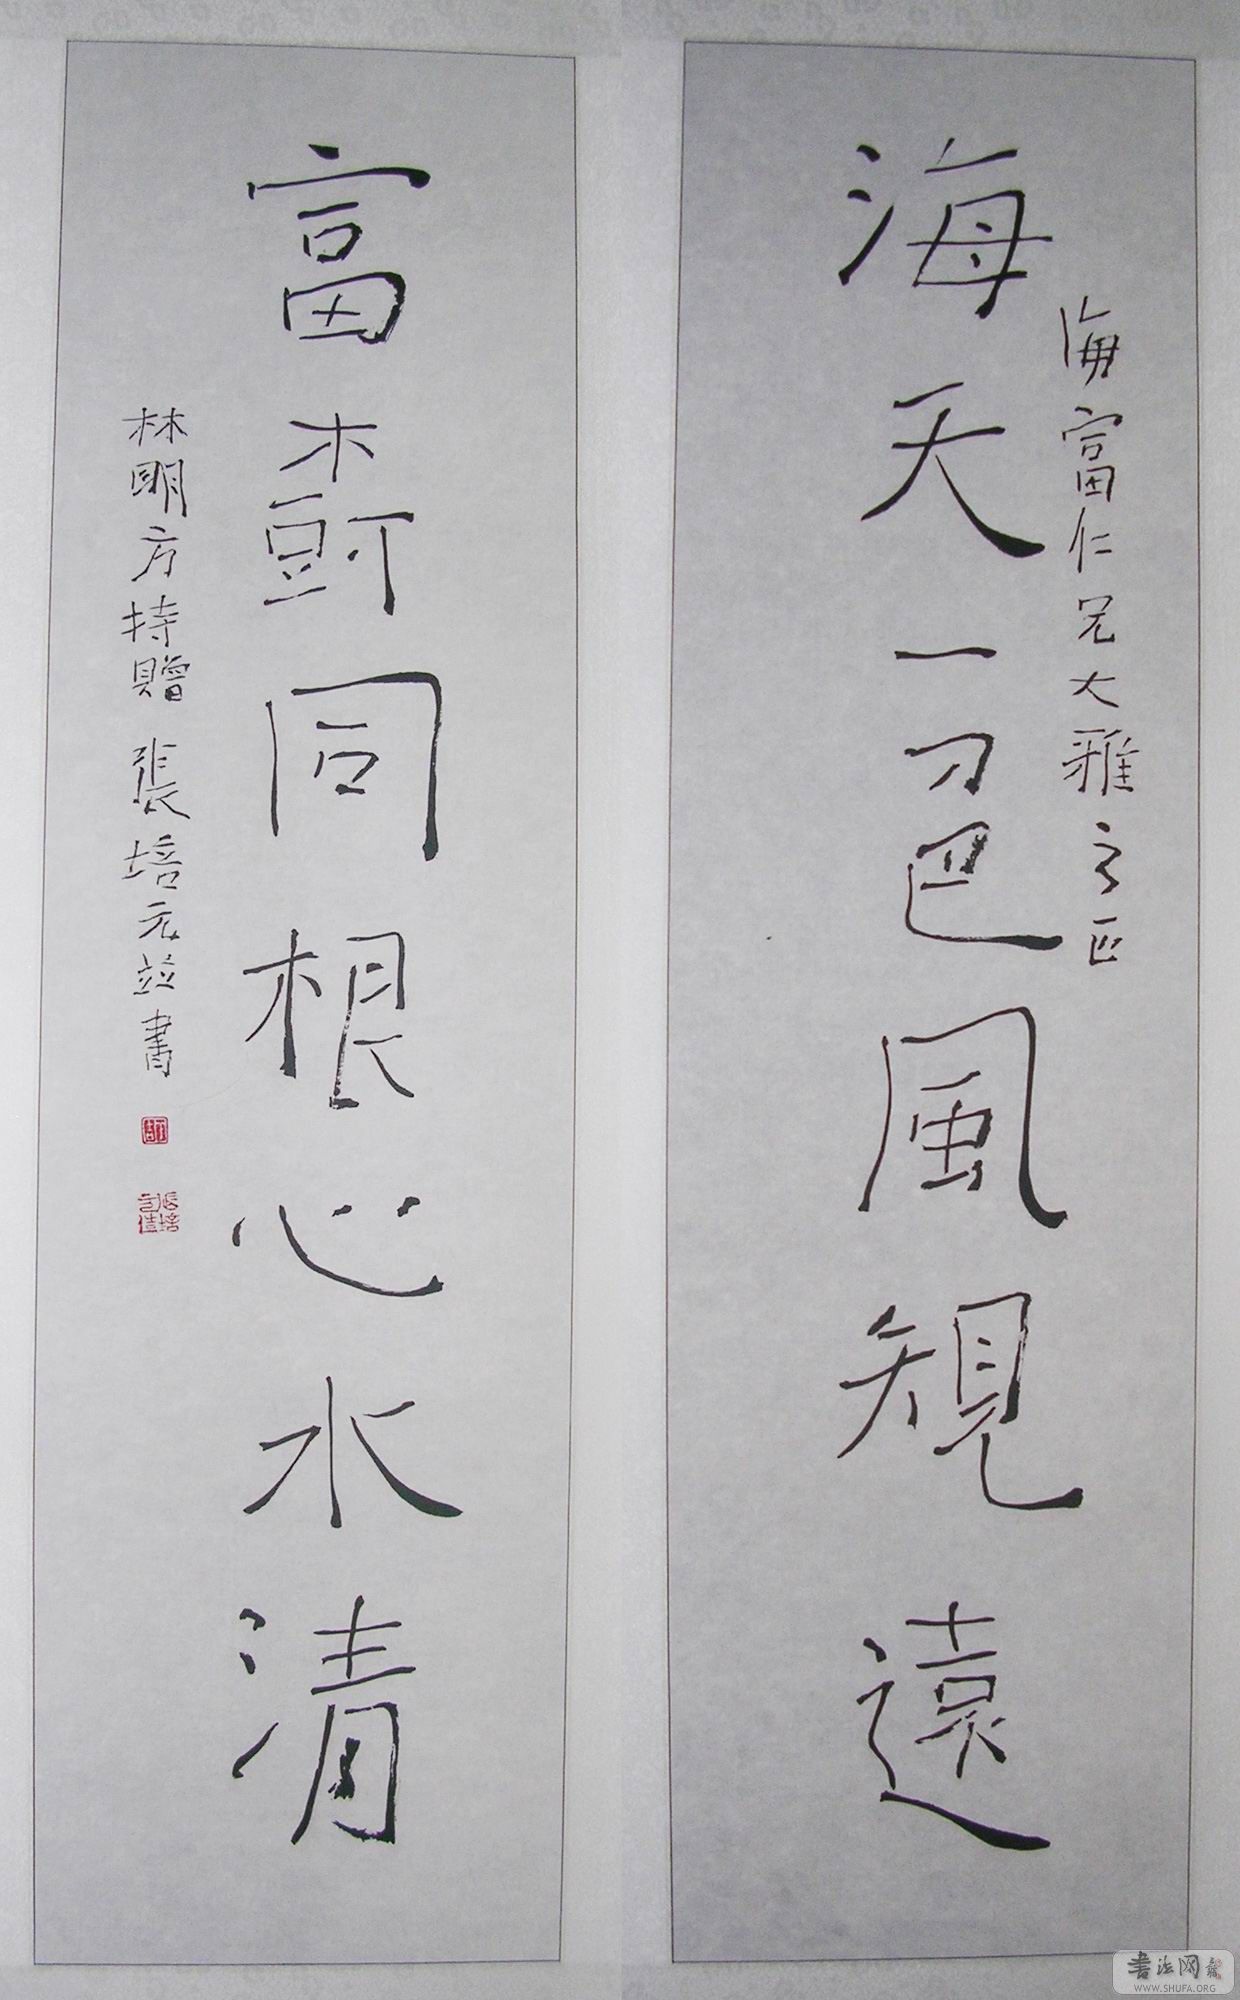 海天一色風規遠
海富仁兄大雅之正
富□同根心水清
林明方持贈 張培元並書
書法网
WWW.SHUFA.ORG